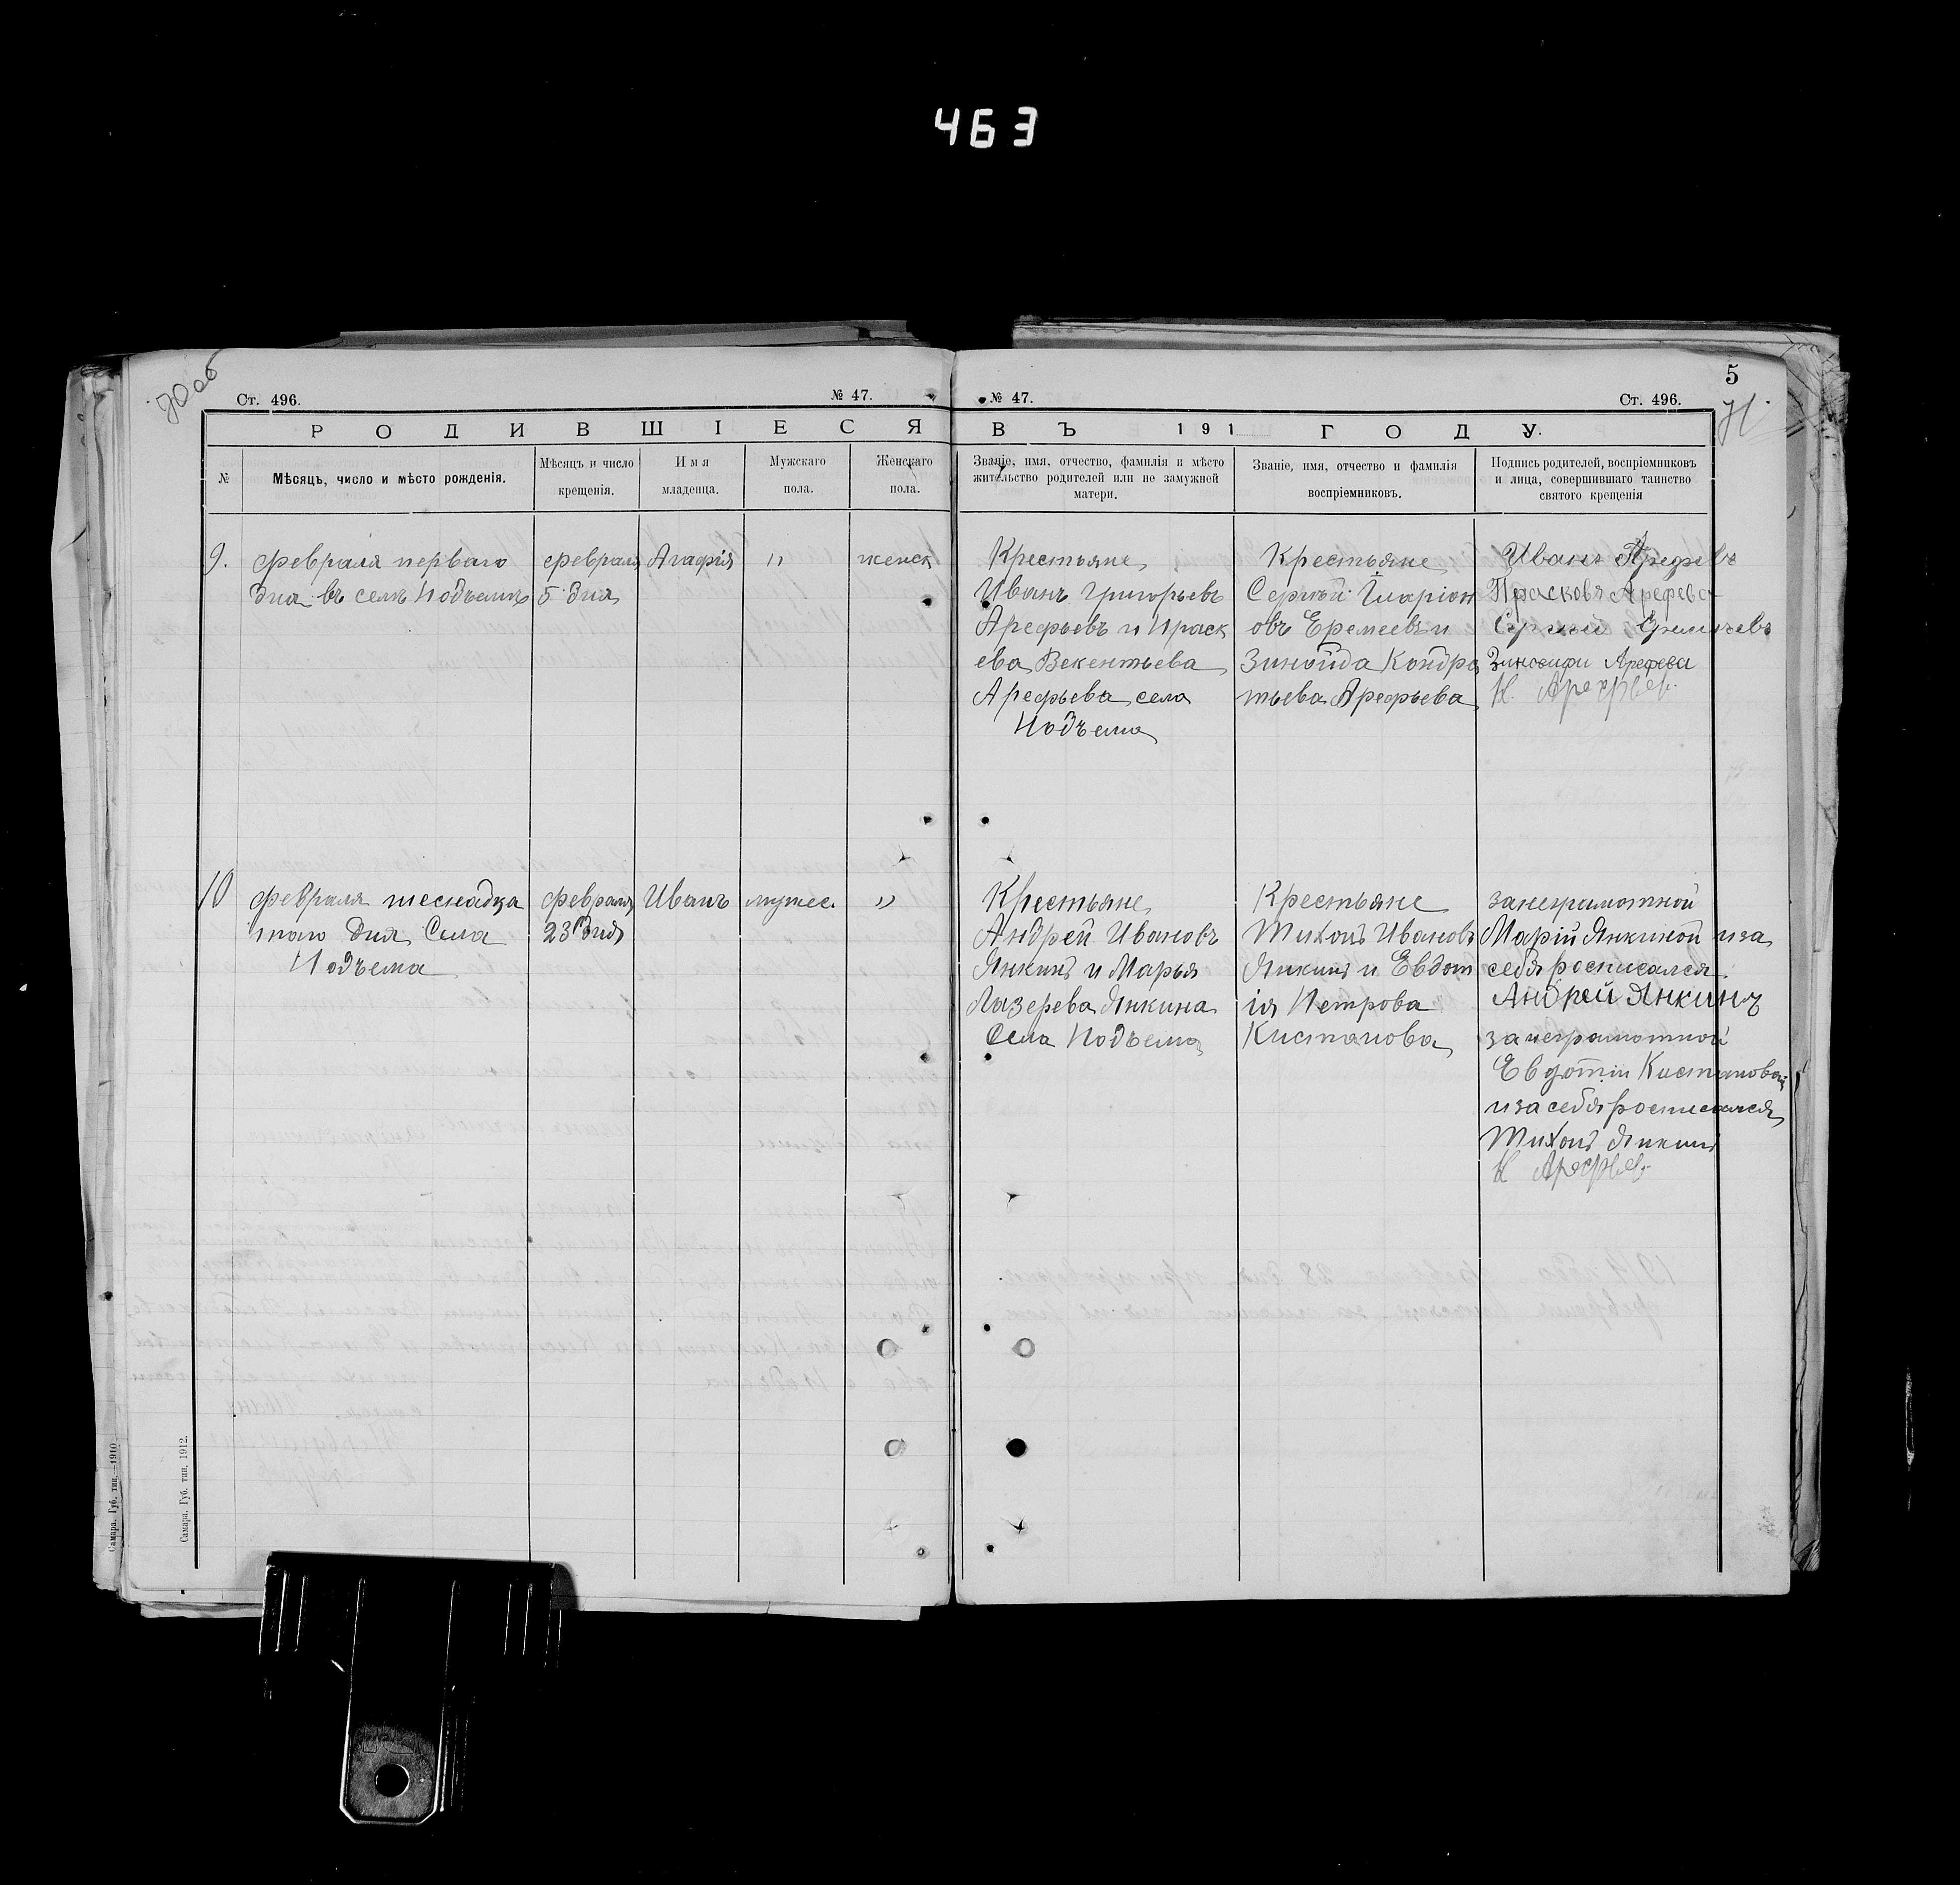 463
70 об
Ст. 496.
№ 47.
№ 47.
Ст. 496.
5
71.
РОДИВШІЕСЯ
ВЪ 191 ГОДУ.
№
Мѣсяцъ, число и мѣсто рожденія.
Мѣсяцъ и число
крещенія.
Имя
младенца.
Мужскаго
пола.
Женскаго
пола.
Званіе, имя, отчество, фамилія и мѣсто
жительство родителей или не замужней
матери.
Званіе, имя, отчество и фамилія
воспріемниковъ.
Подпись родителей, воспріемниковъ
и лица, совершившаго таинство
святого крещенія
9.
февраля перваго
дня въ селѣ Подъемѣ
февраля
5 дня
Агафія
"
женск
Крестьяне
Иванъ Григорьевъ
Арефьевъ и Праск
ева Векентьева
Арефьева села
Подъема
Крестьяне
Сергѣй Іларіон
овъ Еремеевъ и
Зиноида Кондра
тьева Арефьева
Иванъ Арефевъ
Прасковя Арефева
Сергей
Арефева
К. Арефьев.
10
февраля шеснадца
таго дня Села
Подъема
февраля
23 дня
Иванъ
мужес.
"
Крестьяне
Андрей Ивановъ
Янкинъ и Марья
Лазерева Янкина
Села Подъема
Крестьяне
Тихонъ Ивановъ
Янкинъ и Евдот
ія Петрова
Кистанова
занеграмотной
Марій Янкиной и за
себя росписался
Андрей Янкинъ
за неграмотной
Евдотіи Кистановой
и за себя росписался
Тихонъ Янкинъ
К Арефьев.
Самара. Губ. тип.—1910
Самара. Губ. тип. 1912.